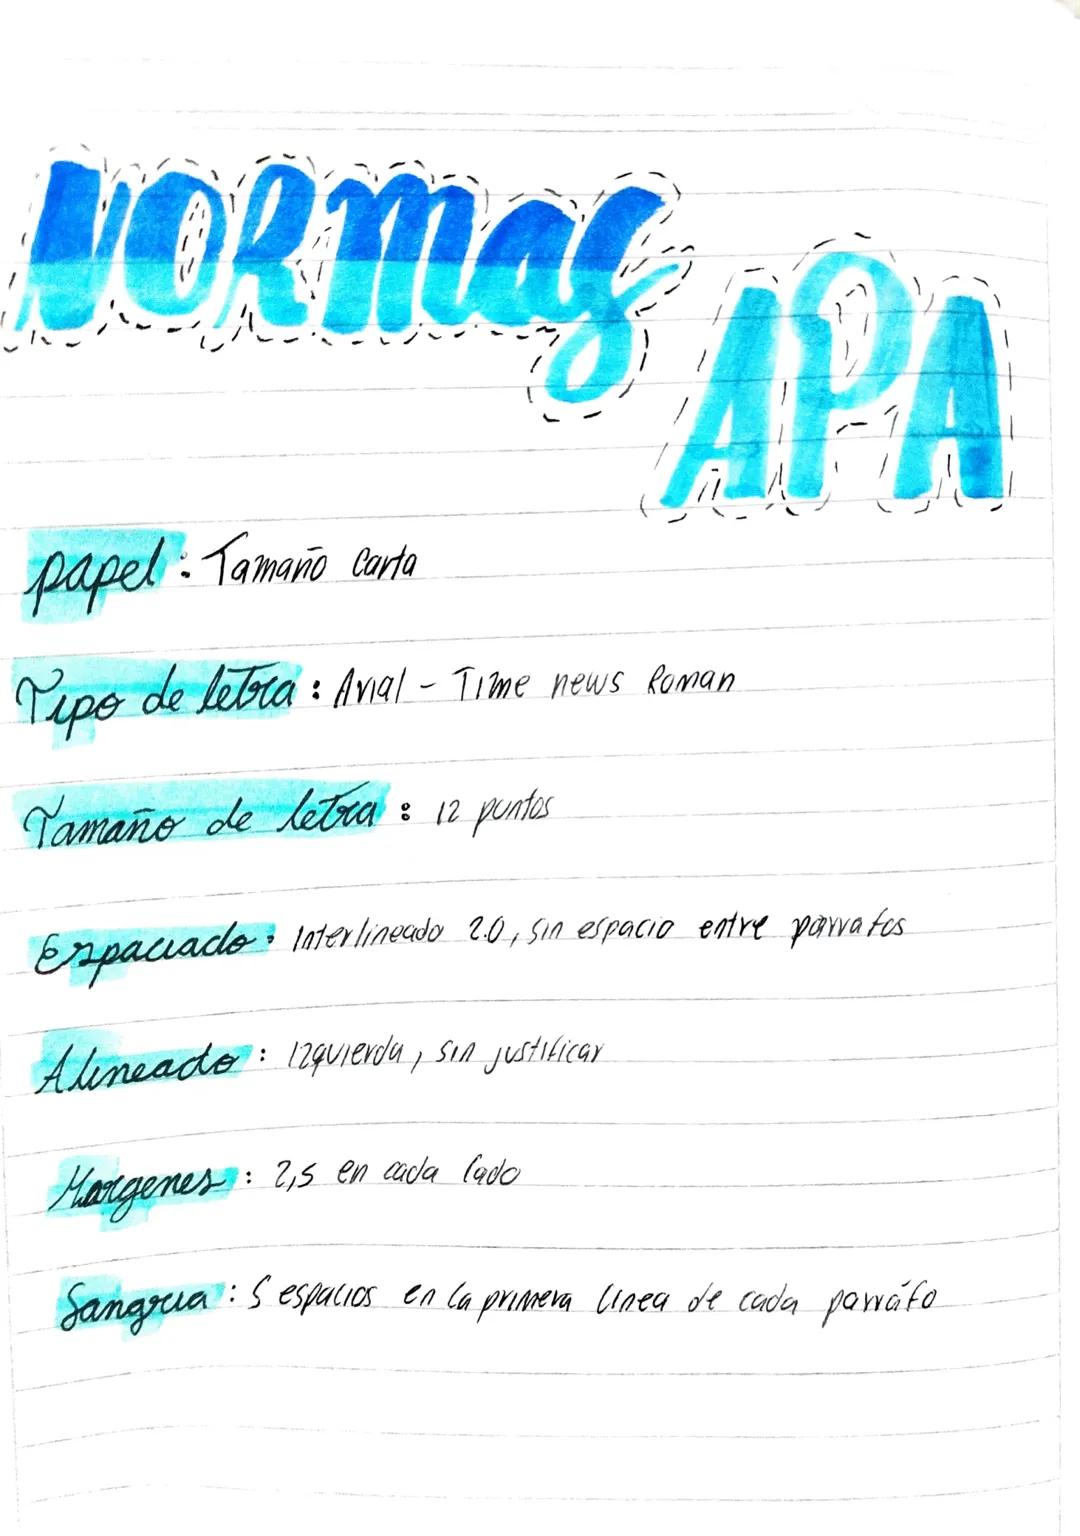 NORMas
APA
papel: Tamaño Carta
Tipo de letra: Arial - Time news Roman
Tamaño de letra: 12 puntos
Espaciado: Interlineado 2.0, sin espacio entre parrafos
Alineado: Izquierda, sin justificar
Margenes: 2,5 en cada lado
Sangria: 5 espacios en la primera linea de cada parráfo